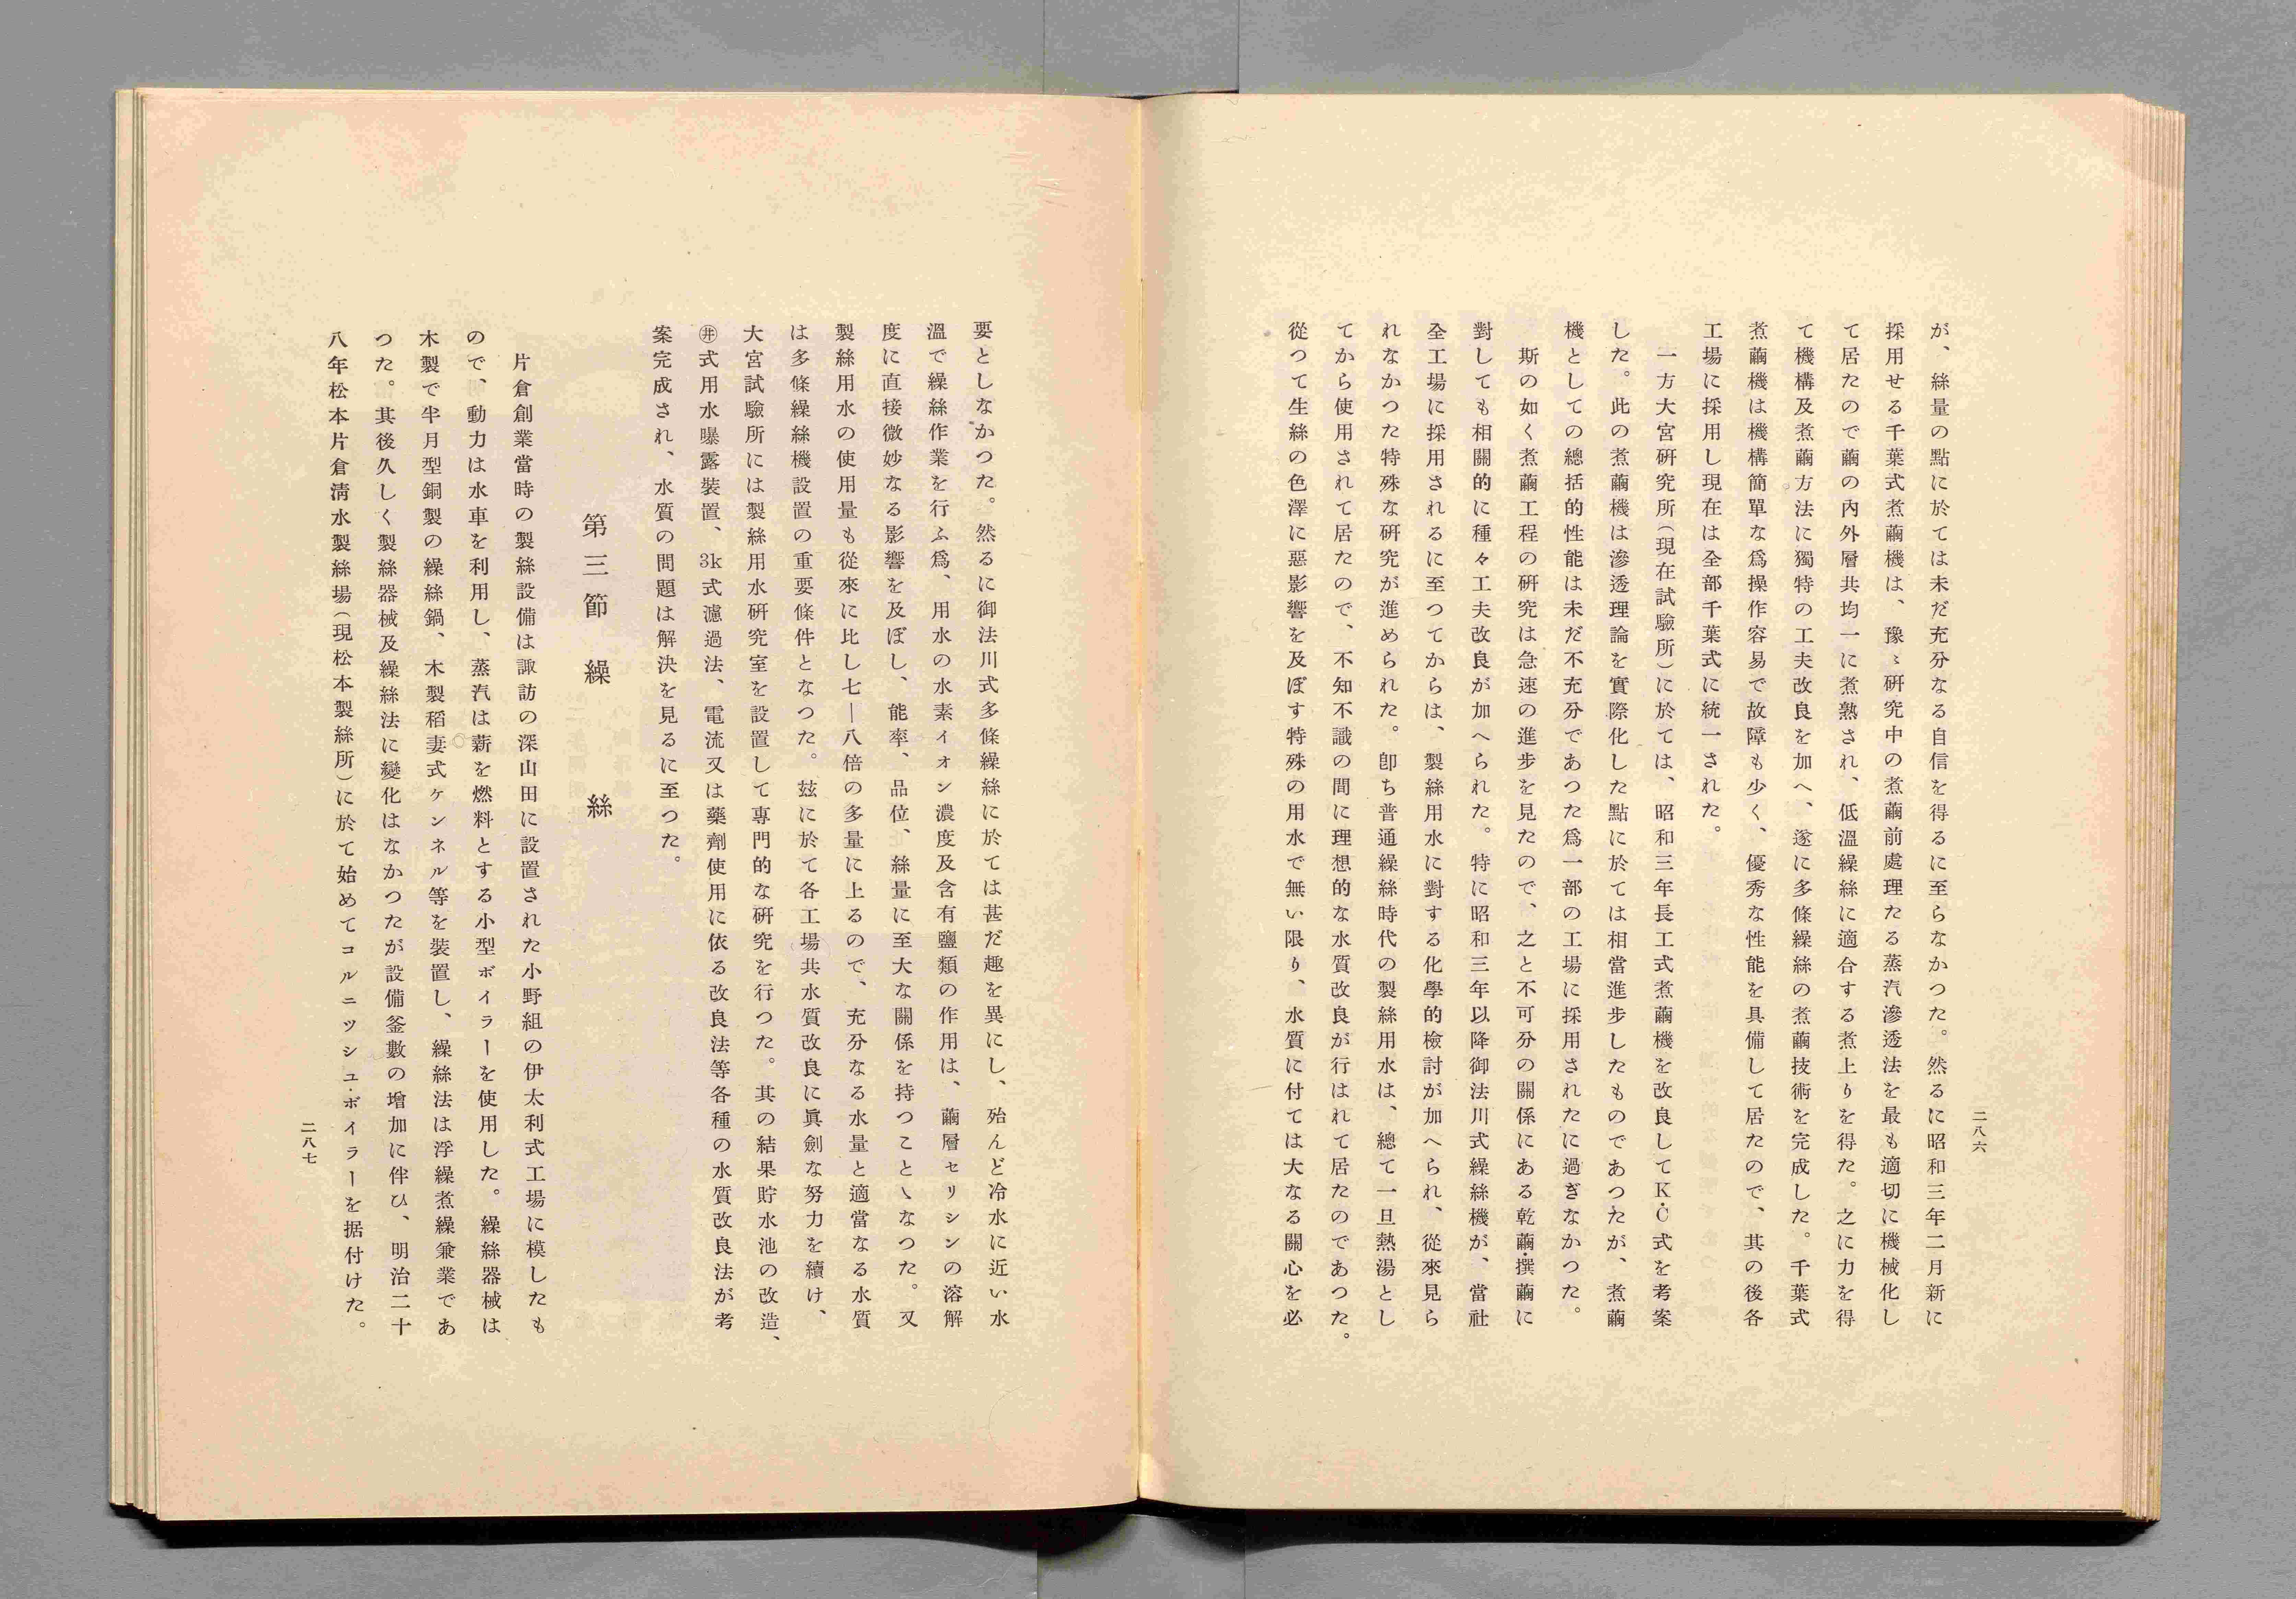 二八六
が、絲量の點に於ては未だ充分なる自信を得るに至らなかつた。然るに昭和三年二月新に
採用せる千葉式煮繭機は、豫〻硏究中の煮繭前處理たる蒸汽滲透法を最も適切に機械化し
て居たので繭の內外層共均一に煮熟され、低溫繰絲に適合する煮上りを得た。之に力を得
て機構及煮繭方法に獨特の工夫改良を加へ、遂に多條繰絲の煮繭技術を完成した。千葉式
煮繭機は機構簡單な爲操作容易で故障も少く、優秀な性能を具備して居たので、其の後各
工場に採用し現在は全部千葉式に統一された。
一方大宮硏究所（現在試驗所）に於ては、昭和三年長工式煮繭機を改良してK・C式を考案
した。此の煮繭機は滲透理論を實際化した點に於ては相當進步したものであつたが、煮繭
機としての總括的性能は未だ不充分であつた爲一部の工場に採用されたに過ぎなかつた。
斯の如く煮繭工程の硏究は急速の進步を見たので、之と不可分の關係にある乾繭・撰繭に
對しても相關的に種々工夫改良が加へられた。特に昭和三年以降御法川式繰絲機が、當社
全工場に採用されるに至つてからは、製絲用水に對する化學的檢討が加へられ、從來見ら
れなかつた特殊な硏究が進められた。卽ち普通繰絲時代の製絲用水は、總て一旦熱湯とし
てから使用されて居たので、不知不識の間に理想的な水質改良が行はれて居たのであつた。
從つて生絲の色澤に惡影響を及ぼす特殊の用水で無い限り、水質に付ては大なる關心を必
要としなかつた。然るに御法川式多條繰絲に於ては甚だ趣を異にし、殆んど冷水に近い水
溫で繰絲作業を行ふ爲、用水の水素イオン濃度及含有鹽類の作用は、繭層セリシンの溶解
度に直接微妙なる影響を及ぼし、能率、品位、絲量に至大な關係を持つことゝなつた。又
製絲用水の使用量も從來に比し七—八倍の多量に上るので、充分なる水量と適當なる水質
は多條繰絲機設置の重要條件となつた。玆に於て各工場共水質改良に眞劍な努力を續け、
大宮試驗所には製絲用水硏究室を設置して專門的な硏究を行つた。其の結果貯水池の改造、
㊩式用水曝露裝置、3k式濾過法、電流又は藥劑使用に依る改良法等各種の水質改良法が考
案完成され、水質の問題は解決を見るに至つた。
第三節　繰　絲
片倉創業當時の製絲設備は諏訪の深山田に設置された小野組の伊太利式工場に模したも
ので、動力は水車を利用し、蒸汽は薪を燃料とする小型ボイラーを使用した。繰絲器械は
木製で半月型銅製の繰絲鍋、木製稻妻式ケンネル等を裝置し、繰絲法は浮繰煮繰兼業であ
つた。其後久しく製絲器械及繰絲法に變化はなかつたが設備釜數の增加に伴ひ、明治二十
八年松本片倉淸水製絲場（現松本製絲所）に於て始めてコルニッシュ・ボイラーを据付けた。
二八七